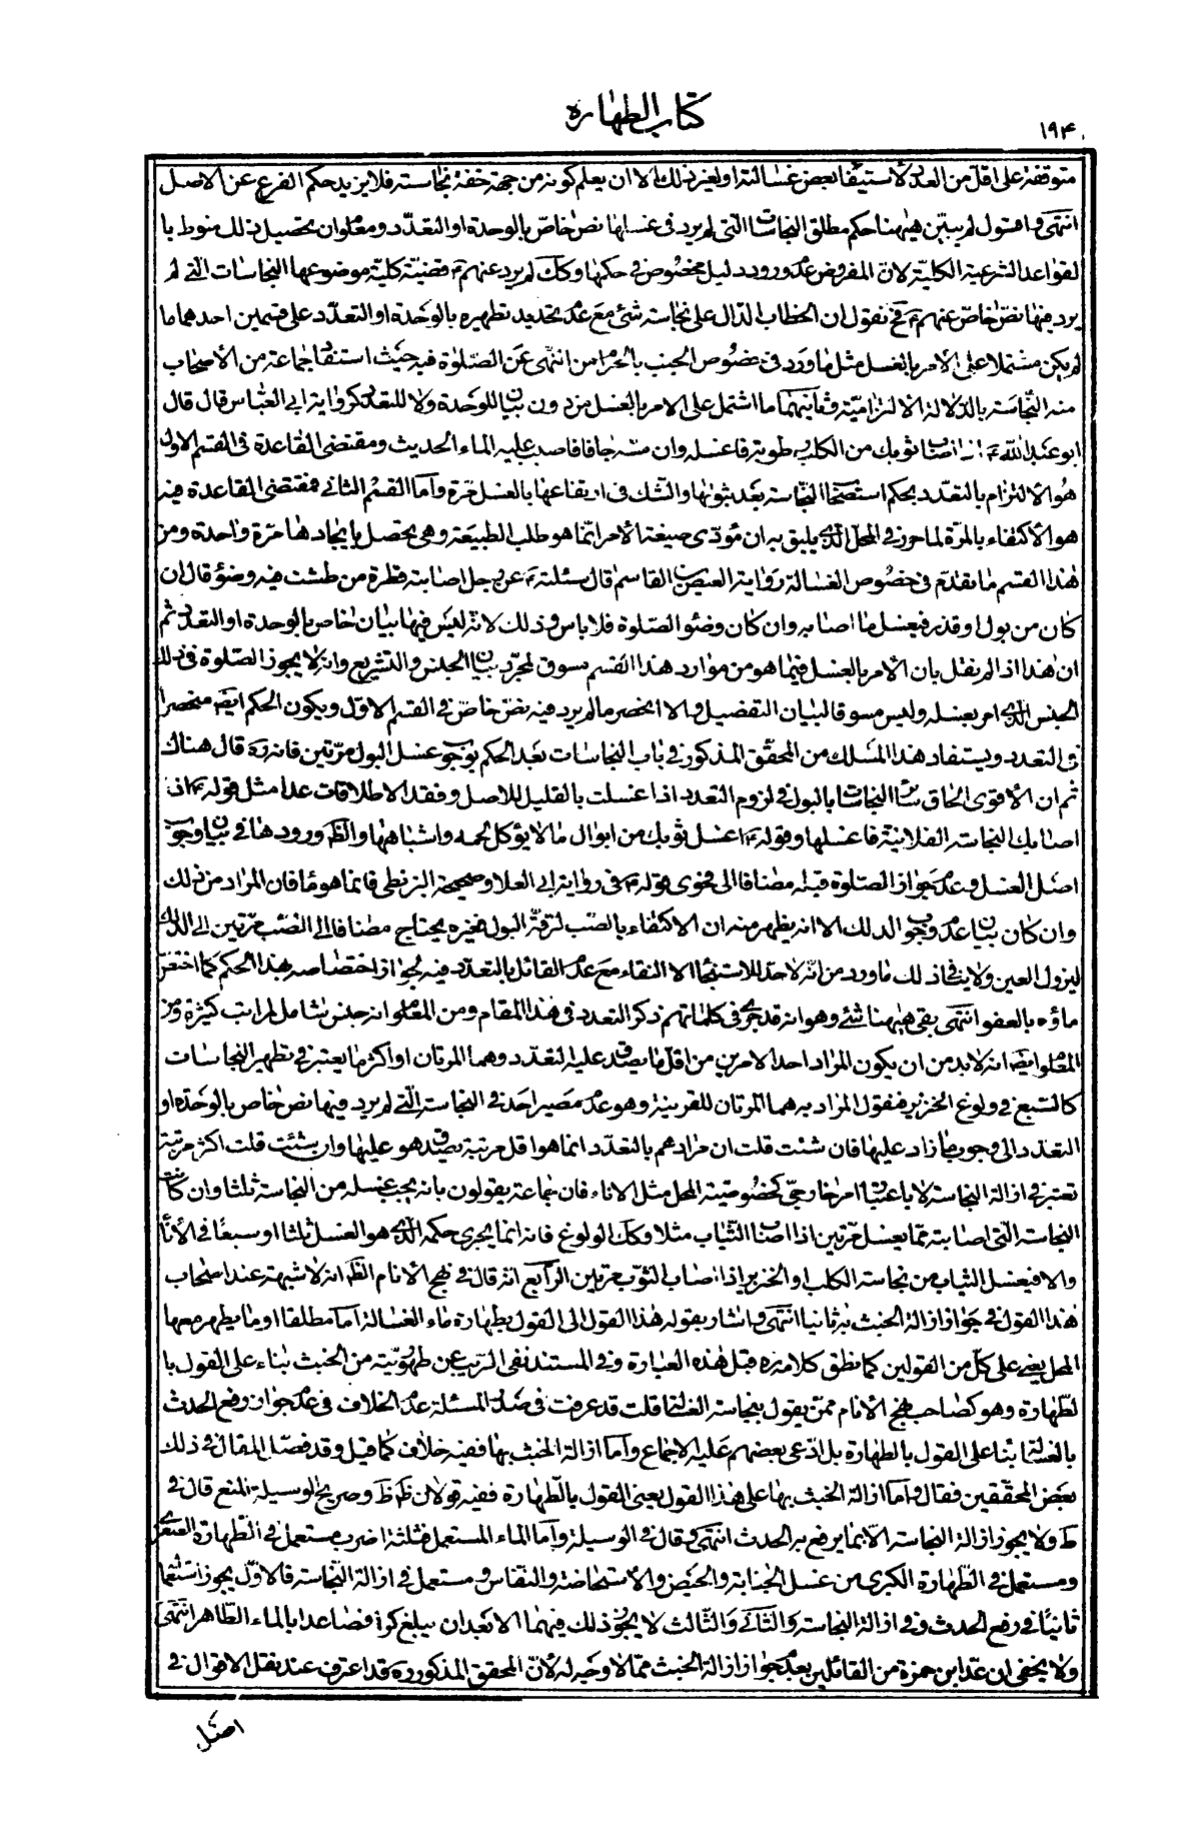 كتاب الطهارة
١٩٤
متوقفة على اقل من العدد لاستيفاء بعض غسالته او لغير ذلك الا ان يعلم كونه من جهة خفة نجاسته فلا يزيد حكم الفرع عن الاصل
انتهى و اقول لم يبيّن هيٰهنا حكم مطلق النجاسات الّتى لم يرد فى غسلها نص خاصّ بالوحدة او التعدّد ومعلوم ان تحصيل ذلك منوط با
لقواعد الشرعية الكلية لانّ المفروض عدم ورود دليل مخصوص فى حكمها وكك لم يرد عنهم ع قضيّة كليّة موضوعها النجاسات الّتى لم
يرد فيها نصّ خاصّ عنهم ع فح نقول ان الخطاب الدّال على نجاسة شئ مع عدم تحديد تطهيره بالوحدة او التعدّد على قسمين احدهما ما
لم يكن مشتملا على الأمر بالغسل مثل ما ورد فى خصوص الجنب بالحرام من النّهى عن الصّلوة فيه حيث استفاد جماعة من الأصحاب
منه النّجاسة بالدّلالة الالتزاميّة وثانيهما ما اشتمل على الامر بالغسل من دون بيان للوحدة ولا للتعدد كرواية ابى العبّاس قال قال
ابو عبد الله ع ان اصاب ثوبك من الكلب رطوبة فاغسله وان مسّه جافا فاصبب عليه الماء الحديث ومقتضى القاعدة فى القسم الاول
هو الالتزام بالتعدّد بحكم استصحاب النّجاسة بعد ثبوتها والشّك فى ارتفاعها بالغسل مرّة وامّا القسم الثانى فمقتضى القاعدة فيه
هو الأكتفاء بالمرّة لما حرر فى المحلّ الّذى يليق به ان مؤدّى صيغة الأمر انّما هو طلب الطبيعة وهى تحصل بايجادها مرّة واحدة ومن
هٰذا القسم ما تقدّم فى خصوص الغسالة رواية العيص بن القاسم قال سئلته ع عن رجل اصابته قطرة من طشت فيه وضوء قال ان
كان من بول او قذر فيغسل ما اصابه وان كان وضوء الصّلوة فلا باس وذلك لانّه ليس فيها بيان خاص بالوحدة او التعدّد ثم
ان هٰذا اذا لم نقل بان الأمر بالغسل فيما هو من موارد هذا القسم مسوق لمجرّد بيان الجنس والتشريع وانّه لا يجوز الصّلوة فى ذلك
الجنس الّذى امر بغسله وليس مسوقا لبيان التفصيل والا انحصر ما لم يرد فيه نصّ خاصّ فى القسم الاوّل ويكون الحكم ايضا منحصرا
فى التعدد ويستفاد هذا المسلك من المحقّق المذكور فى باب النجاسات بعد الحكم بوجوب غسل البول مرّتين فانه ره قال هناك
ثم ان الأقوى الحاق سائر النجاسات بالبول فى لزوم التعدد اذا غسلت بالقليل للاصل وفقد الاطلاقات عدا مثل قوله ع اذا
اصابك النجاسة الفلانيّة فاغسلها وقوله ع اغسل ثوبك من ابوال ما لا يؤكل لحمه واشباههما والظ ورودها فى بيان وجوب
اصل الغسل وعدم جواز الصّلوة قبله مضافا الى فحوى قوله ع فى رواية ابى العلا وصحيحة البزنطى فانما هو ماء فان المراد من ذلك
وان كان بيان عدم وجوب الدلك الا انه يظهر منه ان الاكتفاء بالصّب لرقّة البول فغيره يحتاج مضافا الى الصّب مرّتين الى الدلك
ليزول العين ولا ينافى ذلك ما ورد من انّه لا حدّ للاستنجاء الا النقاء مع عدم القائل بالتعدّد فيه لجواز اختصاصه بهذا الحكم كما اختصّ
ماؤه بالعفو انتهى بقى هيٰهنا شئ وهو انه قد جرى فى كلماتهم ذكر التعدد فى هٰذا المقام ومن المعلوم انه جنس شامل لمراتب كثيرة ومن
المعلوم ايضا انّه لا بد من ان يكون المراد احد الامرين من اقل ما يصدق عليه التعدّد وهما المرتان او اكثر ما يعتبر فى تطهير النجاسات
كالسّبع فى ولوغ الخنزير فنقول المراد به هما المرتان للقرينة وهو عدم مصير احد فى النجاسة الّتى لم يرد فيها نص خاص بالوحدة او
التعدّد الى وجوب ما زاد عليها فان شئت قلت ان مرادهم بالتعدّد انما هو اقل مرتبة يصدق هو عليها وان شئت قلت اكثر مرتبة
تعتبر فى ازالة النجاسة لا باعتبار امر خارجىّ كخصوصيّة المحل مثل الاناء فان جماعة يقولون بانه يجب غسله من النجاسة ثلثا وان كانت
النجاسة الّتى اصابته ممّا يغسل مرّتين اذا اصاب الثّياب مثلا وكك الولوغ فانه انما يجرى حكمه الّذى هو الغسل ثلثا او سبعًا فى الأناء
والا فيغسل الثياب من نجاسة الكلب او الخنزير اذا اصاب الثّوب مرتين الرّابع انّه قال فى نهج الأنام الظ انّه لا شبهة عند اصحاب
هٰذا القول فى جواز ازالة الخبث به ثانيا انتهى و اشار بقوله هٰذا القول الى القول بطهارة ماء الغسالة امّا مطلقا او ما يطهر معها
المحل يعنى على كلّ من القولين كما نطق كلامه ره قبل هٰذه العبارة وفى المستند نفى الرّيب عن طهوريّته من الخبث بناء على القول با
لطّهارة وهو كصاحب نهج الأنام ممّن يقول بنجاسة الغسالة قلت قد عرفت فى صدر المسئلة عدم الخلاف فى عدم جواز رفع الحدث
بالغسالة بناء على القول بالطهارة بل ادّعى بعضهم عليه الاجماع وامّا ازالة الخبث بها ففيه خلاف كما قيل وقد فصّل المقال فى ذلك
بعض المحقّقين فقال وامّا ازالة الخبث بها على هٰذا القول يعنى القول بالطّهارة ففيه قولان ظ ط وصريح الوسيلة المنع قال فى
ط ولا يجوز ازالة النجاسة الّا بما يرفع به الحدث انتهى وقال فى الوسيلة وامّا الماء المستعمل فثلثة اضرب مستعمل فى الطّهارة الصغرى
ومستعمل فى الطّهارة الكبرى من غسل الجنابة والحيض والاستحاضة والنفاس ومستعمل فى ازالة النّجاسة فالاوّل يجوز استعماله
ثانيًا فى رفع الحدث وفى ازالة النجاسة والثّانى والثّالث لا يجوز ذلك فيهما الا بعد ان يبلغ كرّا فصاعدا بالماء الطّاهر انتهى
ولا يخفى ان عدّ ابن حمزة من القائلين بعدم جواز ازالة الخبث ممّا لا وجه له لأنّ المحقق المذكور ره قد اعترف عند نقل الاقوال فى
اصل